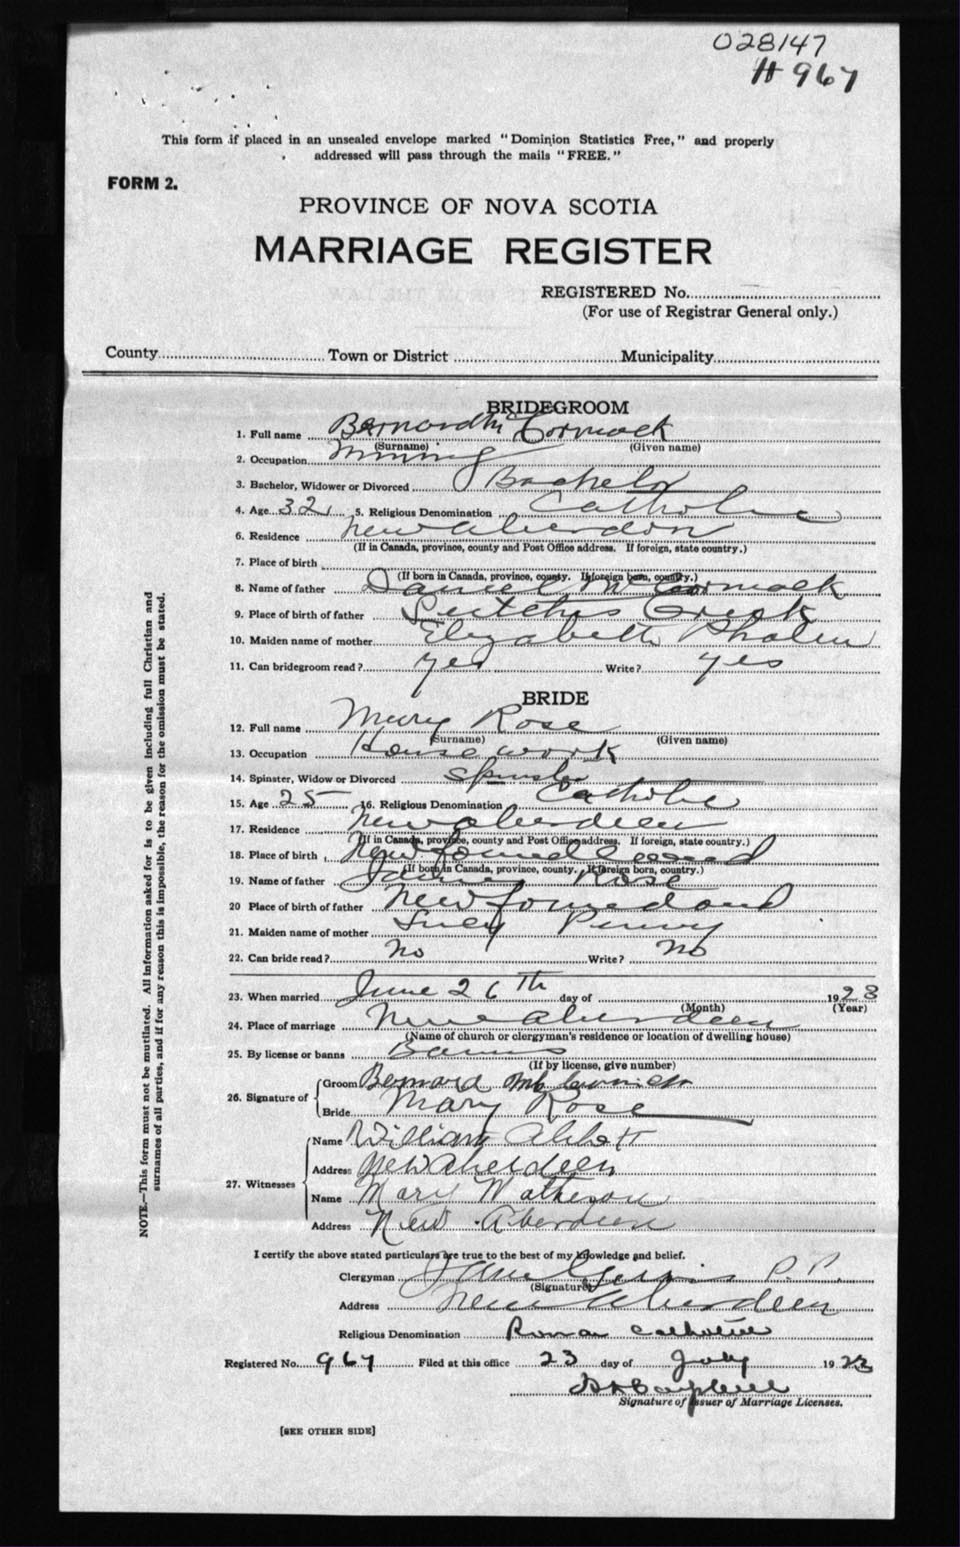 028147
# 967
This form if placed in an unsealed envelope marked "Dominion Statistics Free," and properly
addressed will pass through the mails "FREE."
FORM 2.
PROVINCE OF NOVA SCOTIA
MARRIAGE REGISTER
REGISTERED No.
(For use of Registrar General only.)
County Town or District Municipality
BRIDEGROOM
1. Full name Bernard Mc Cormack
(Surname) (Given name)
2. Occupation mining
3. Bachelor, Widower or Divorced Bachelor
4. Age 32 5. Religious Denomination Catholic
6. Residence New Aberdon
(If in Canada, province, county and Post Office address. If foreign, state country.)
7. Place of birth
(If born in Canada, province, county. If foreign born, country.)
8. Name of father Daniel McCormack
9. Place of birth of father Leitches Creek
10. Maiden name of mother Elizabeth Phalen
11. Can bridegroom read? yes Write? yes
BRIDE
12. Full name Mary Rose
(Surname) (Given name)
13. Occupation House work
14. Spinster, Widow or Divorced Spinster
15. Age 25 16. Religious Denomination Catholic
17. Residence New Aberdeen
(If in Canada, province, county and Post Office address. If foreign, state country.)
18. Place of birth
(If born in Canada, province, county. If foreign born, country.)
19. Name of father James Rose
20 Place of birth of father Newfoundland
21. Maiden name of mother Lucy
22. Can bride read? No Write? No
23. When married June 26th day of 1923
(Month) (Year)
24. Place of marriage New Aberdeen
(Name of church or clergyman's residence or location of dwelling house)
25. By license or banns Banns
(If by license, give number)
26. Signature of
Groom Bernard
Bride Mary Rose
27. Witnesses
Name William Abbott
Address New Aberdeen
Name Mary Matheson
Address New Aberdeen
I certify the above stated particulars are true to the best of my knowledge and belief.
Clergyman P.P.
(Signature)
Address New Aberdeen
Religious Denomination Roman Catholic
Registered No. 967 Filed at this office 23 day of July 1923
Signature of Issuer of Marriage Licenses.
[SEE OTHER SIDE]
NOTE.—This form must not be mutilated. All information asked for is to be given including full Christian and
surnames of all parties, and if for any reason this is impossible, the reason for the omission must be stated.